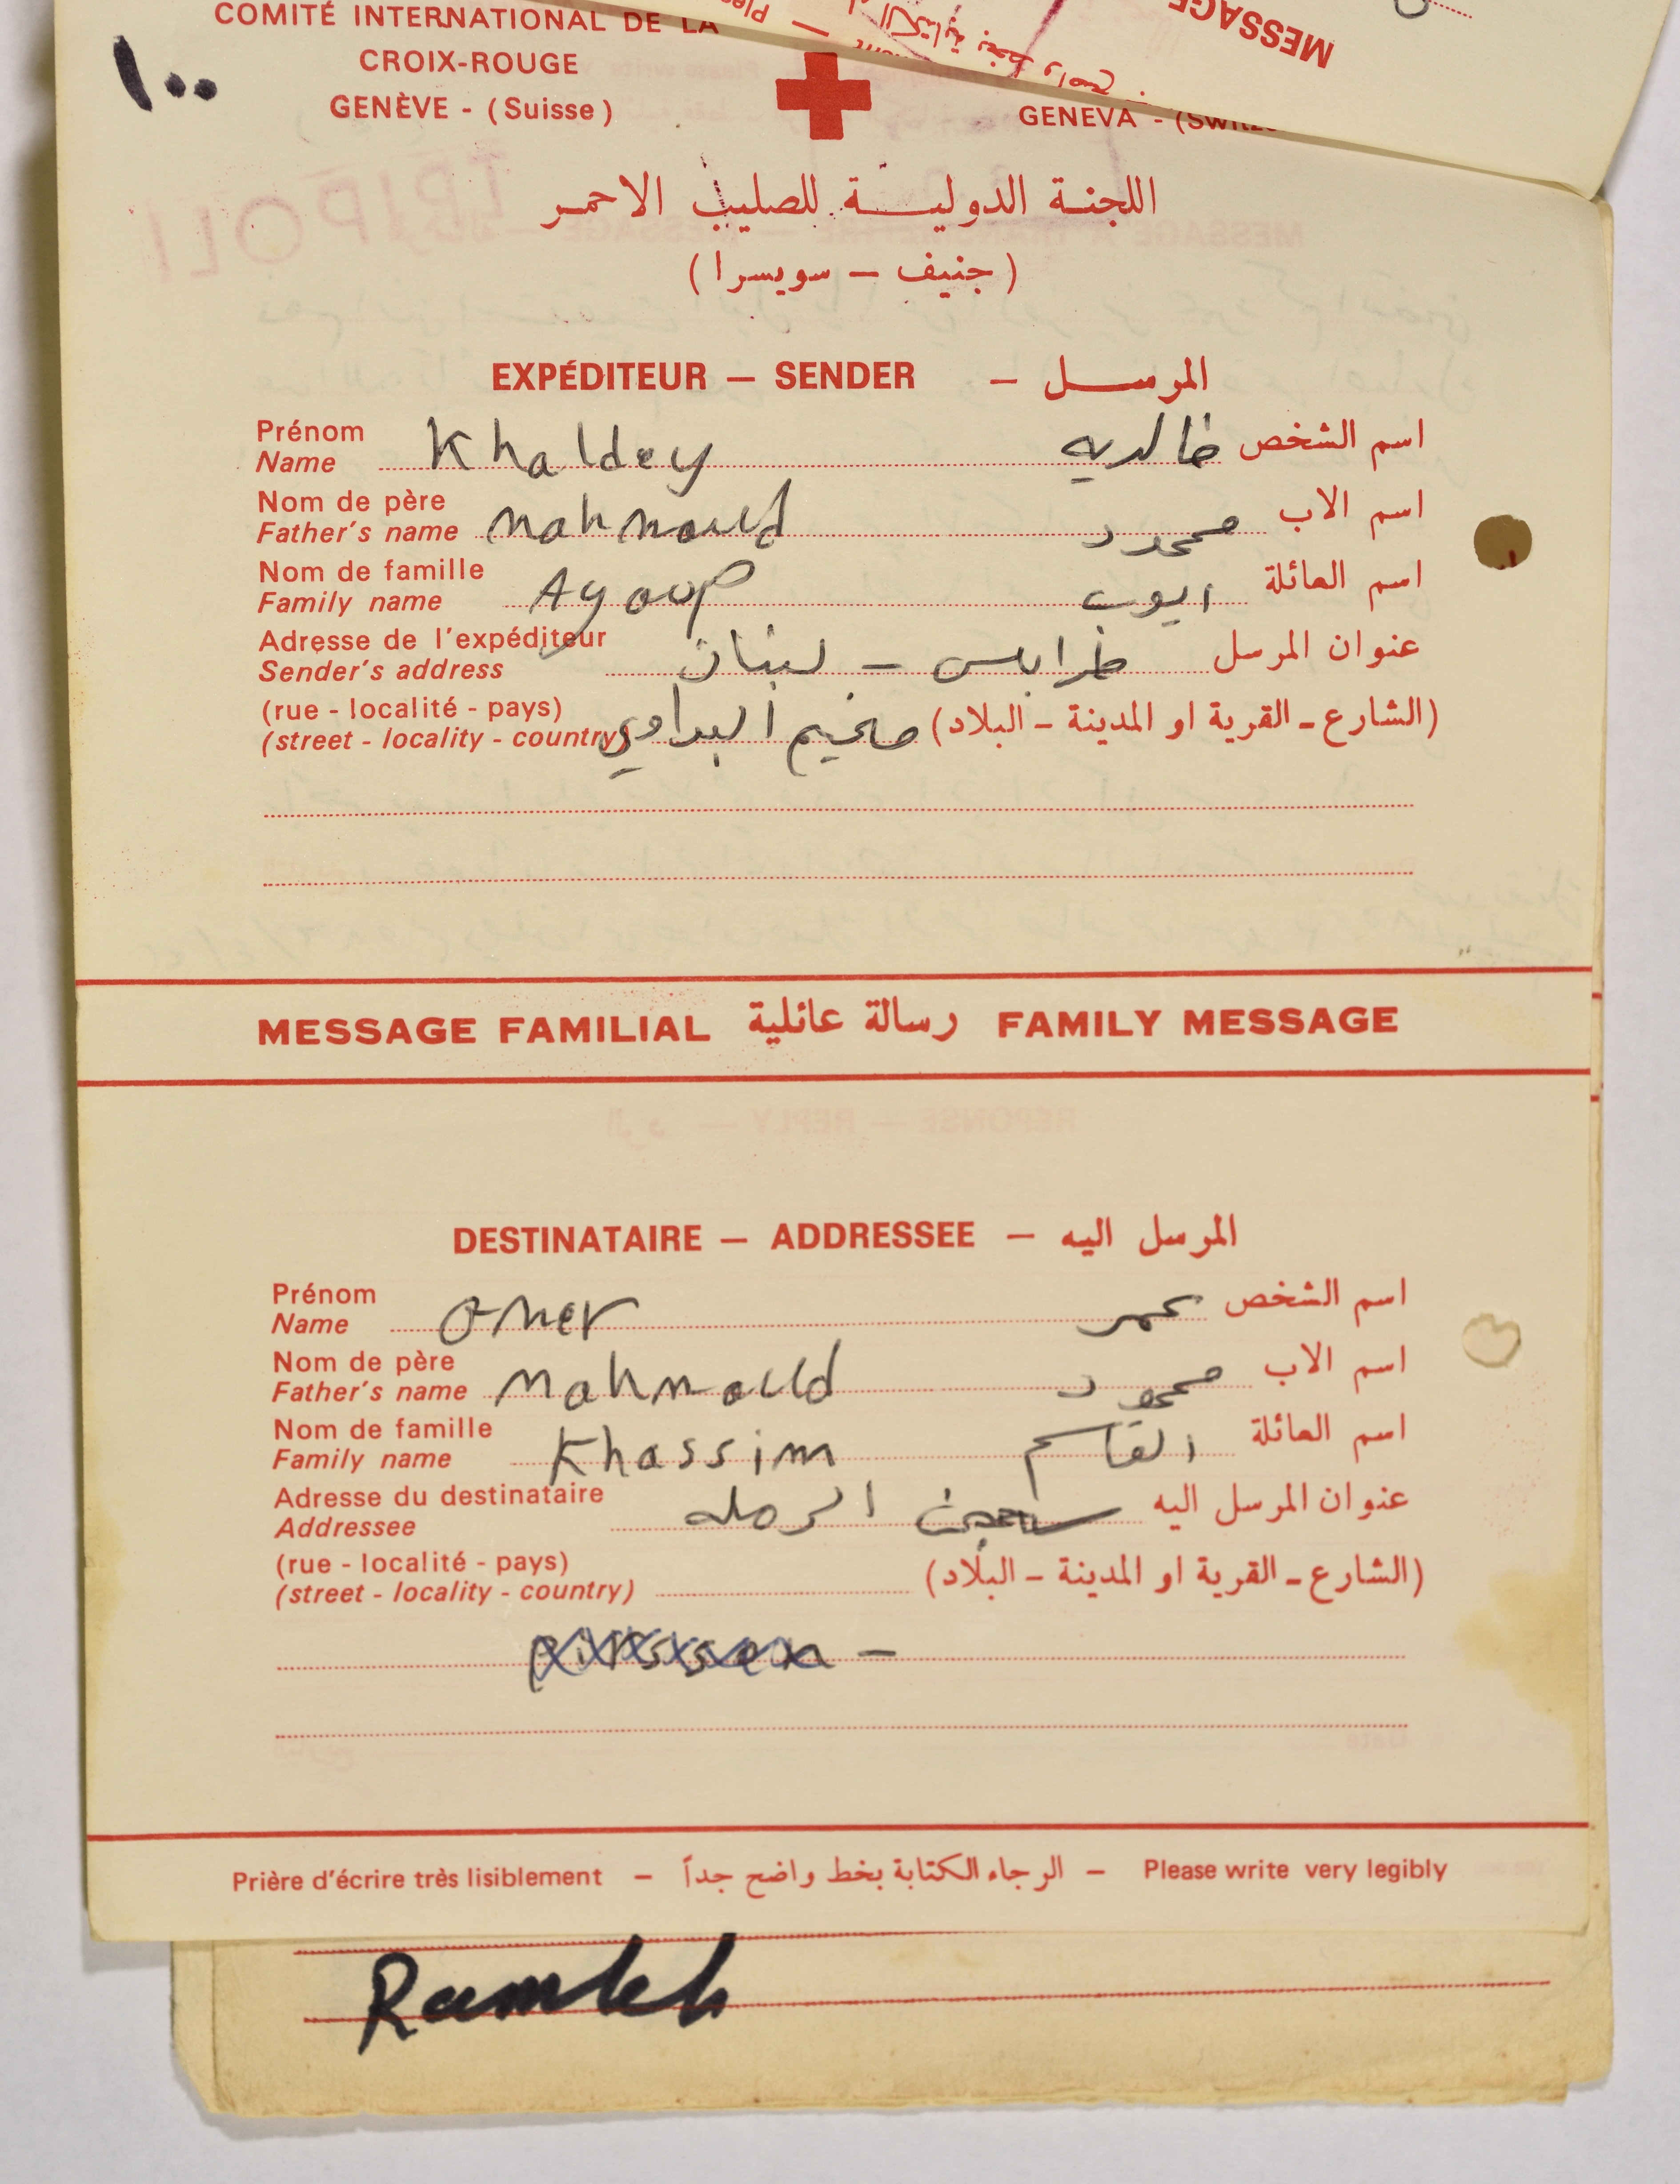 COMITÉ INTERNATIONAL DE LA
CROIX-ROUGE
GENÈVE - (Suisse)
GENEVA - (SWITZ
MESSAGE
١٠٠
TRIPOLI
اللجنة الدولية للصليب الاحمر
(جنيف — سويسرا)
EXPÉDITEUR — SENDER — المرسل
Prénom
Name Khaldey خالديه اسم الشخص
Nom de père
Father's name Mahmoud محمود اسم الاب
Nom de famille
Family name Ayoup ايوب اسم العائلة
Adresse de l'expéditeur
Sender's address طرابلس - لبنان عنوان المرسل
(rue - localité - pays)
(street - locality - country) مخيم البداوي (الشارع - القرية او المدينة - البلاد)
MESSAGE FAMILIAL رسالة عائلية FAMILY MESSAGE
RÉPONSE — REPLY — الرد
DESTINATAIRE — ADDRESSEE — المرسل اليه
Prénom
Name Omer عمر اسم الشخص
Nom de père
Father's name Mahmould محمود اسم الاب
Nom de famille
Family name Khassim القاسم اسم العائلة
Adresse du destinataire
Addressee سجن الرمله عنوان المرسل اليه
(rue - localité - pays)
(street - locality - country) (الشارع - القرية او المدينة - البلاد)
Prière d'écrire très lisiblement — الرجاء الكتابة بخط واضح جداً — Please write very legibly
Ramleh